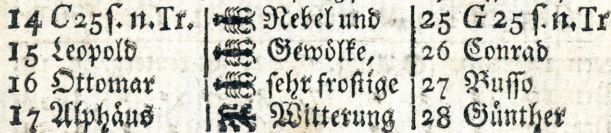 14 C 25 ſ. n. Tr. Nebel und 25 G 25 ſ. n. Tr
15 Leopold Gewölke, 26 Conrad
16 Ottomar ſehr froſtige 27 Buſſo
17 Alphäus Witterung 28 Günther